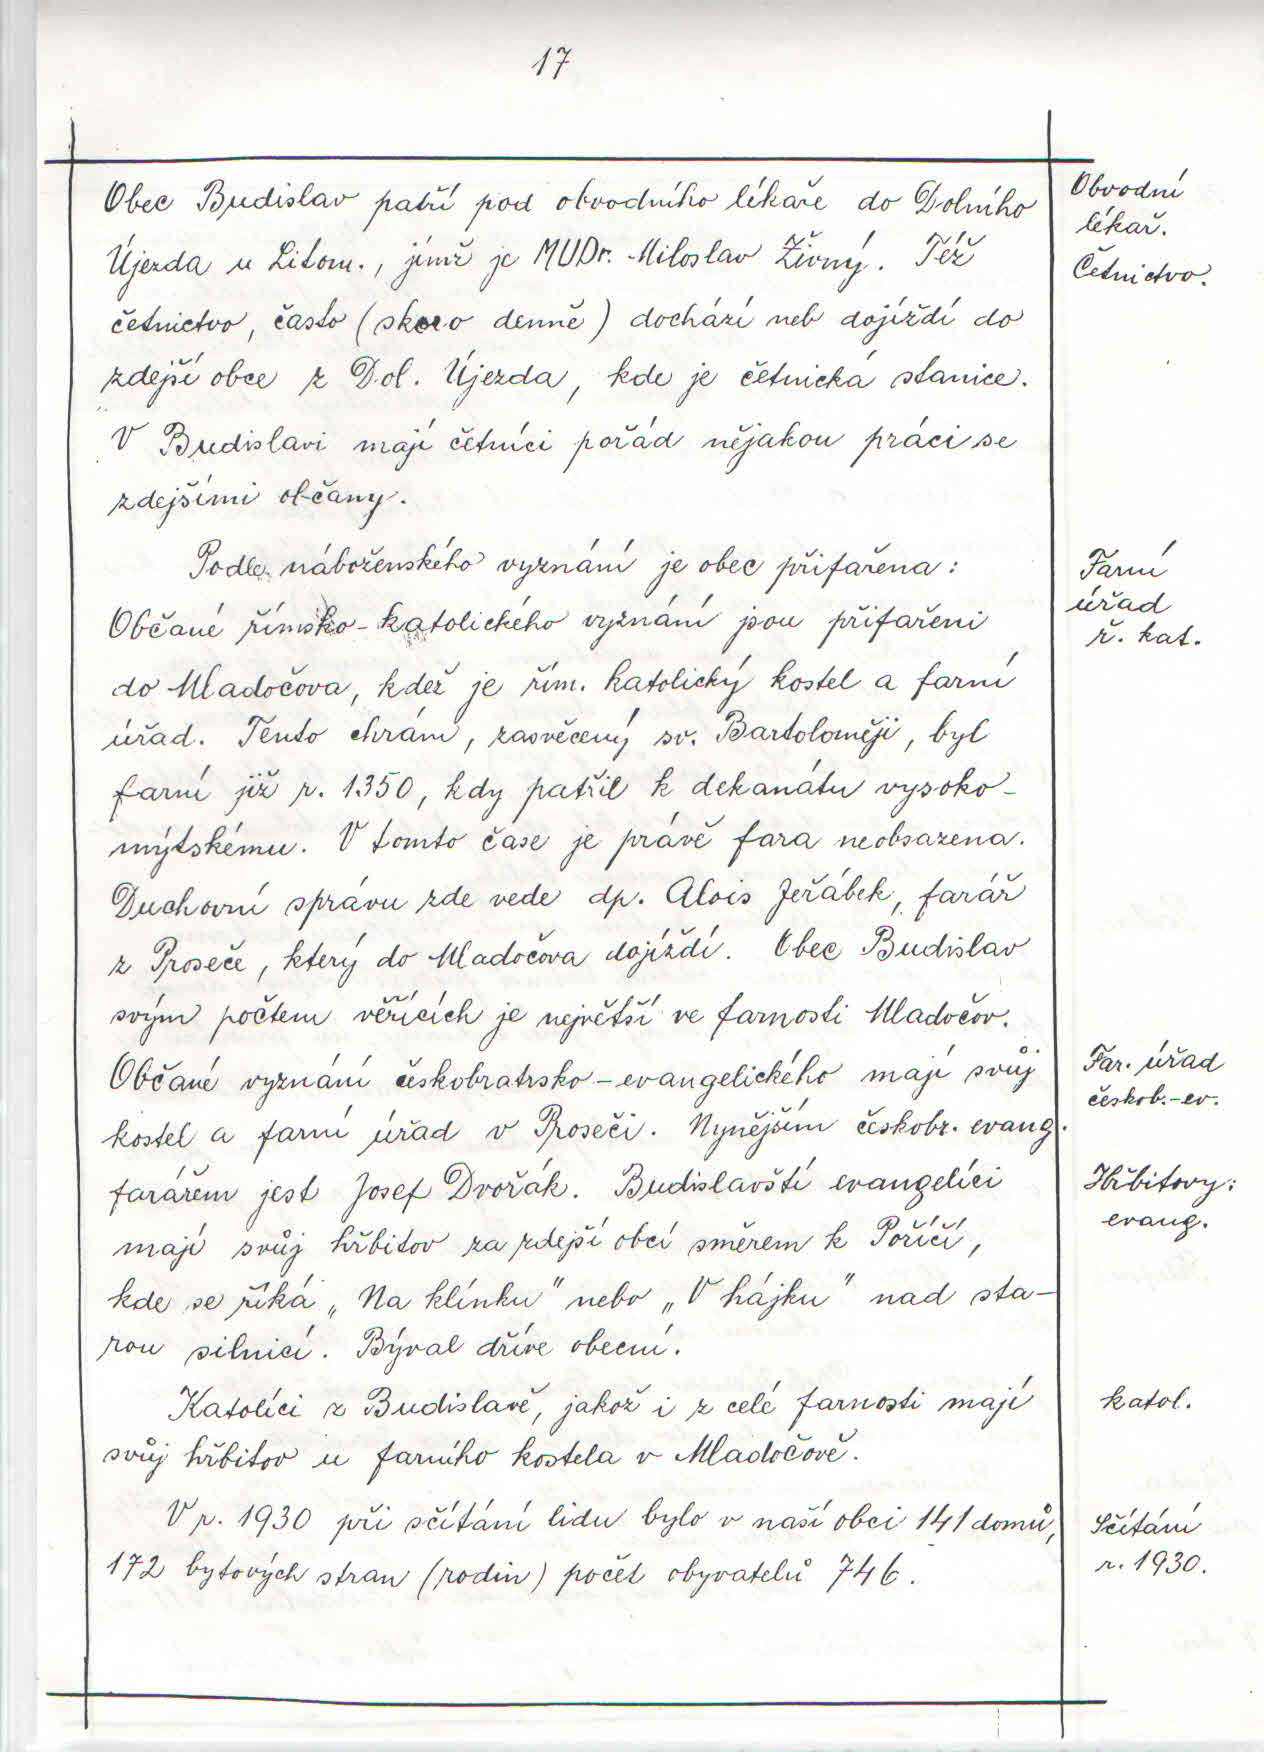 17
Obec Budislav patří pod obvodního lékaře do Dolního
Újezda u Litom., jímž je MUDr. Miloslav Živný. Též
četnictvo, často (skoro denně) dochází neb dojíždí do
zdejší obce z Dol. Újezda, kde je četnická stanice.
V Budislavi mají četníci pořád nějakou práci se
zdejšími občany.
Obvodní
lékař.
Četnictvo.
Podle náboženského vyznání je obec přifařena:
Občané římsko-katolického vyznání jsou přifařeni
do Mladočova, kdež je řím. katolický kostel a farní
úřad. Tento chrám, zasvěcený sv. Bartoloměji, byl
farní již r. 1350, kdy patřil k dekanátu vysoko-
mýtskému. V tomto čase je právě fara neobsazena.
Duchovní správu zde vede dp. Alois Jeřábek, farář
z Proseče, který do Mladočova dojíždí. Obec Budislav
svým počtem věřících je největší ve farnosti Mladočov.
Farní
úřad
ř. kat.
Občané vyznání českobratrsko-evangelického mají svůj
kostel a farní úřad v Proseči. Nynějším českobr. evang.
farářem jest Josef Dvořák. Budislavští evangelíci
mají svůj hřbitov za zdejší obcí směrem k Poříčí,
kde se říká „Na klínku" nebo „V hájku" nad sta-
rou silnicí. Býval dříve obecní.
Far. úřad
českob.-ev.
Hřbitovy:
evang.
Katolíci z Budislavě, jakož i z celé farnosti mají
svůj hřbitov u farního kostela v Mladočově.
katol.
V r. 1930 při sčítání lidu bylo v naší obci 141 domů,
172 bytových stran (rodin) počet obyvatelů 746.
Sčítání
r. 1930.